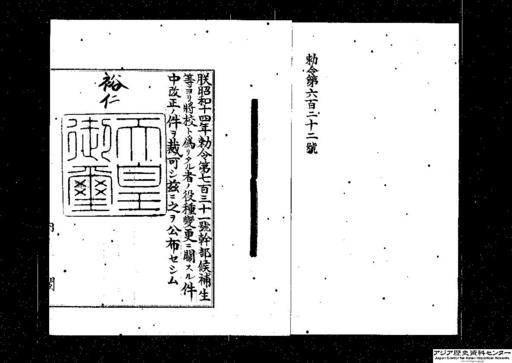 勅令第六百二十二號
朕昭和十四年勅令第七百三十一號幹部候補生
等ヨリ將校ト爲リタル者ノ役種變更ニ關スル件
中改正ノ件ヲ裁可シ茲ニ之ヲ公布セシム
裕仁
天皇
御璽
内閣
アジア歴史資料センター
Japan Center for Asian Historical Records